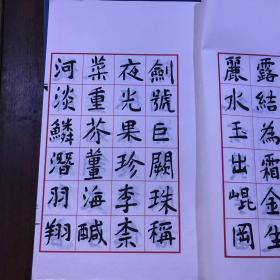 露結為霜金生
麗水玉出崐岡
劍號巨闕珠稱
夜光果珍李柰
菜重芥薑海鹹
河淡鱗潛羽翔